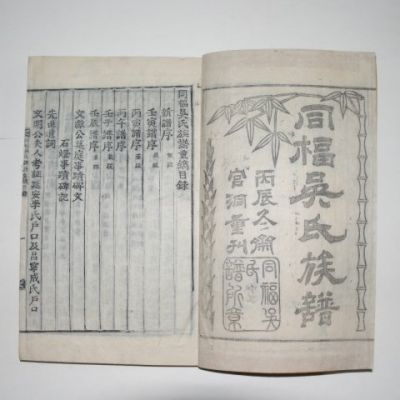 同福吳氏族譜
丙辰冬
官洞重刊
同福吳
氏
譜所章
同福吳氏族譜重編目錄
新譜序
壬寅譜序
丙寅譜序
丙午譜序
壬子譜序
壬辰譜序
文獻公墓庭事蹟碑文
石 事蹟碑記
先進遺詞
文明公夫人考證 安李氏戶口及昌寧成氏戶口